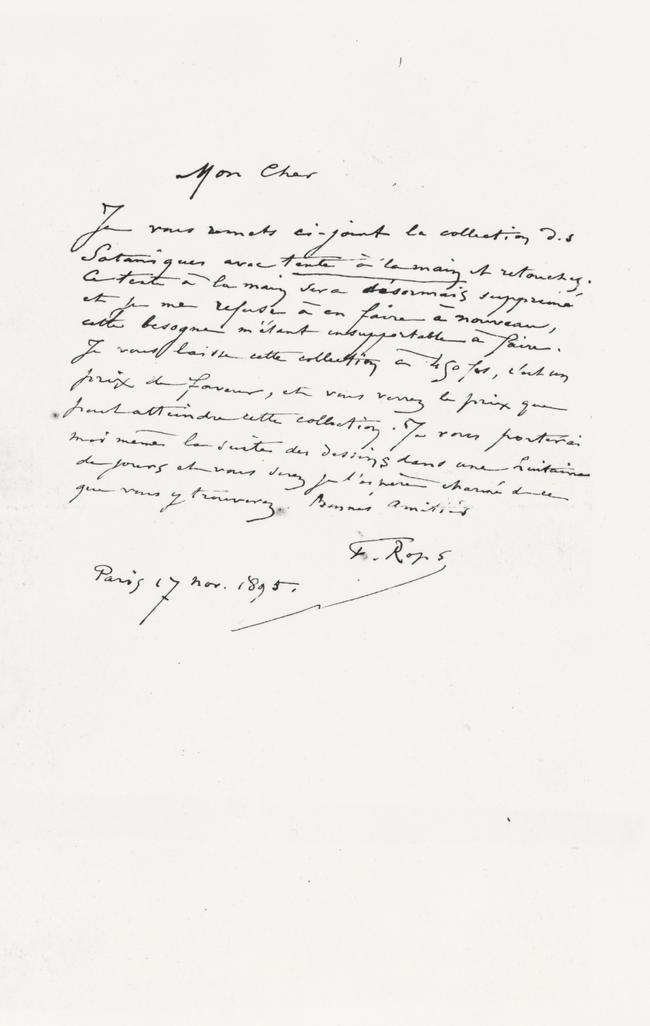 Mon Cher
Je vous remets ci-joint la collection des
Sataniques avec texte à la main et retouches.
Ce texte à la main sera désormais supprimé
et je me refuse à en faire à nouveau,
cette besogne m'étant insupportable à faire.
Je vous laisse cette collection à 450 frs, c'est un
prix de faveur, et vous verrez le prix que
peut atteindre cette collection. Je vous porterai
moi même la suite des dessins dans une huitaine
de jours et vous serez je l'espère charmé de ce
que vous y trouverez. Bonnes Amitiés
F. Rops
Paris 17 nov. 1895.